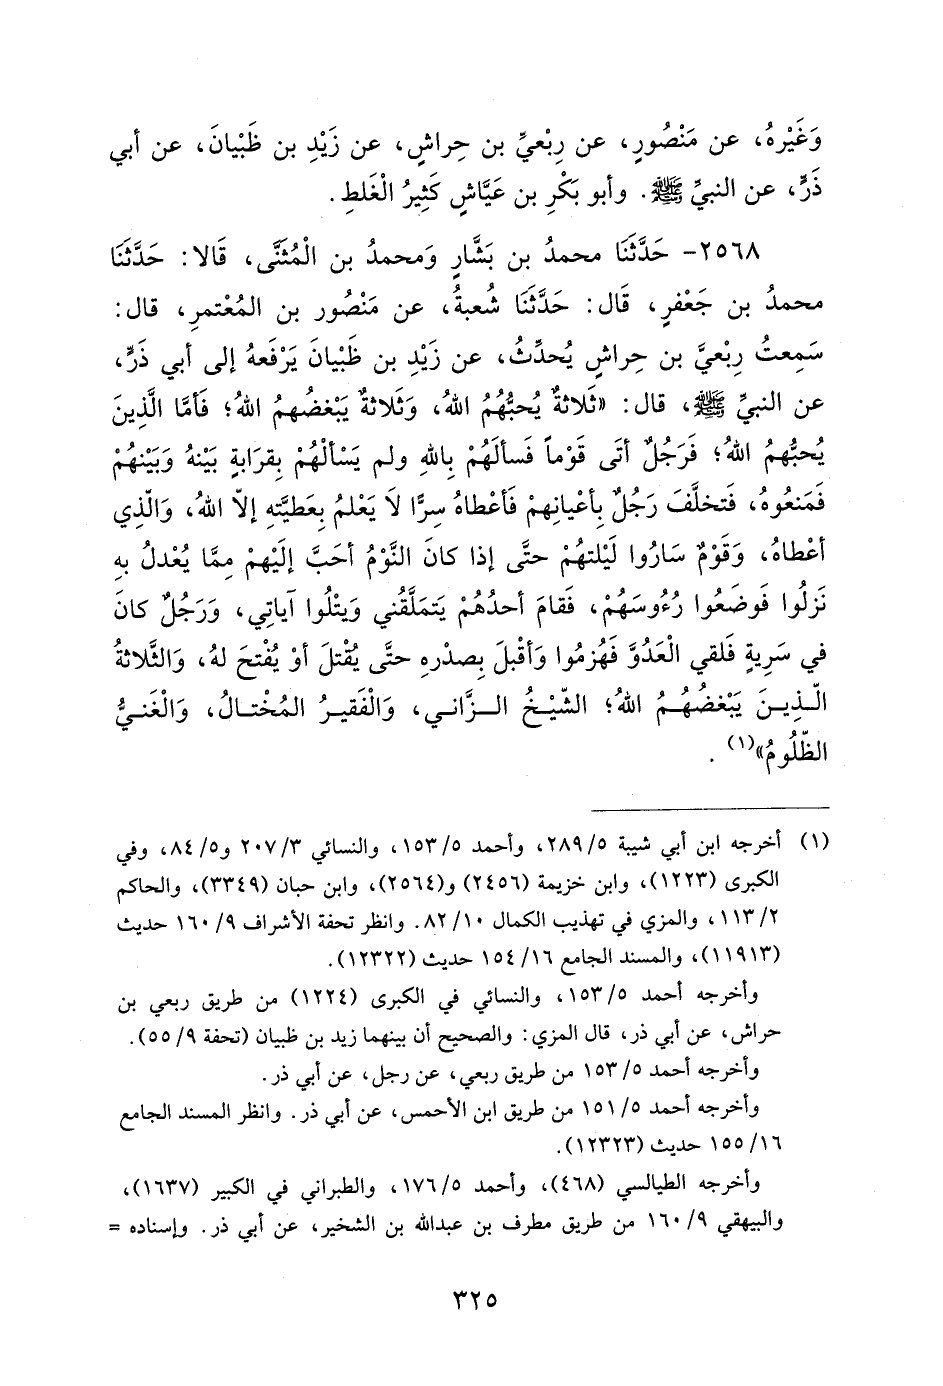 وَغَيْرِهُ، عن مَنْصُورٍ، عن رِبْعيِّ بن حِراشٍ، عن زَيْدِ بن ظَبْيانَ، عن أبي
ذَرٍّ، عن النبيِّ ﷺ. وأبو بَكْرِ بن عَيَّاشٍ كَثِيرُ الْغَلطِ.
٢٥٦٨- حَدَّثَنَا محمدُ بن بَشَّارٍ وَمحمدُ بن الْمُثنَّى، قَالا: حَدَّثَنَا
محمدُ بن جَعْفرٍ، قَال: حَدَّثَنَا شُعبةُ، عن مَنْصُور بن المُعْتمرِ، قال:
سَمِعتُ رِبْعيَّ بن حِراشٍ يُحدِّثُ، عن زَيْدِ بن ظَبْيانَ يَرْفَعهُ إلى أبي ذَرٍّ،
عن النبيِّ ﷺ، قال: «ثَلاثةٌ يُحبُّهُمُ اللهُ، وَثَلاثةٌ يَبْغضُهمُ اللهُ؛ فَأمَّا الَّذِينَ
يُحبُّهمُ اللهُ؛ فَرَجُلٌ أتَى قَوْماً فَسألَهُمْ بِاللهِ ولم يَسْألْهُمْ بِقرَابةٍ بَيْنهُ وَبَيْنهُمْ
فَمَنعُوهُ، فَتخلَّفَ رَجُلٌ بِأعْيانِهمْ فَأعْطاهُ سِرًّا لَا يَعْلمُ بِعَطيَّتهِ إلاّ اللهُ، وَالّذِي
أعْطاهُ، وَقَوْمٌ سَارُوا لَيْلتهُمْ حتَّى إذا كانَ النَّوْمُ أحَبَّ إلَيْهمْ مِمَّا يُعْدلُ بهِ
نَزلُوا فَوضَعُوا رُءُوسَهُمْ، فَقامَ أحدُهُمْ يَتمَلَّقُني وَيتْلُوا آياتِي، وَرَجُلٌ كانَ
في سَرِيةٍ فَلقي الْعَدُوَّ فَهُزمُوا وَأقْبلَ بِصدْرهِ حتَّى يُقْتلَ أوْ يُفْتحَ لهُ، وَالثَّلاثةُ
الّذِينَ يَبْغضُهُمُ اللهُ؛ الشّيْخُ الزَّاني، وَالْفَقيرُ المُخْتالُ، وَالْغَنيُّ
الظّلُومُ»(١) .
(١) أخرجه ابن أبي شيبة ٥/ ٢٨٩، وأحمد ٥/ ١٥٣، والنسائي ٣/ ٢٠٧ و٥/ ٨٤، وفي
الكبرى (١٢٢٣)، وابن خزيمة (٢٤٥٦) و(٢٥٦٤)، وابن حبان (٣٣٤٩)، والحاكم
٢/ ١١٣، والمزي في تهذيب الكمال ١٠/ ٨٢. وانظر تحفة الأشراف ٩/ ١٦٠ حديث
(١١٩١٣)، والمسند الجامع ١٦/ ١٥٤ حديث (١٢٣٢٢).
وأخرجه أحمد ٥/ ١٥٣، والنسائي في الكبرى (١٢٢٤) من طريق ربعي بن
حراش، عن أبي ذر، قال المزي: والصحيح أن بينهما زيد بن ظبيان (تحفة ٩/ ٥٥).
وأخرجه أحمد ٥/ ١٥٣ من طريق ربعي، عن رجل، عن أبي ذر.
وأخرجه أحمد ٥/ ١٥١ من طريق ابن الأحمس، عن أبي ذر. وانظر المسند الجامع
١٦/ ١٥٥ حديث (١٢٣٢٣).
وأخرجه الطيالسي (٤٦٨)، وأحمد ٥/ ١٧٦، والطبراني في الكبير (١٦٣٧)،
والبيهقي ٩/ ١٦٠ من طريق مطرف بن عبدالله بن الشخير، عن أبي ذر. وإسناده =
٣٢٥